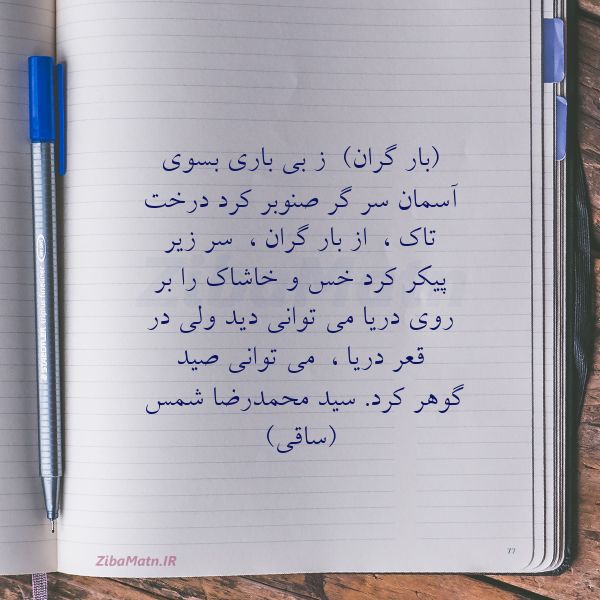 (بار گران) ز بی باری بسوی
آسمان سر گر صنوبر کرد درخت
تاک ، از بار گران ، سر زیر
پیکر کرد خس و خاشاک را بر
روی دریا می توانی دید ولی در
قعر دریا ، می توانی صید
گوهر کرد. سید محمدرضا شمس
(ساقی)
77
ZibaMatn.IR